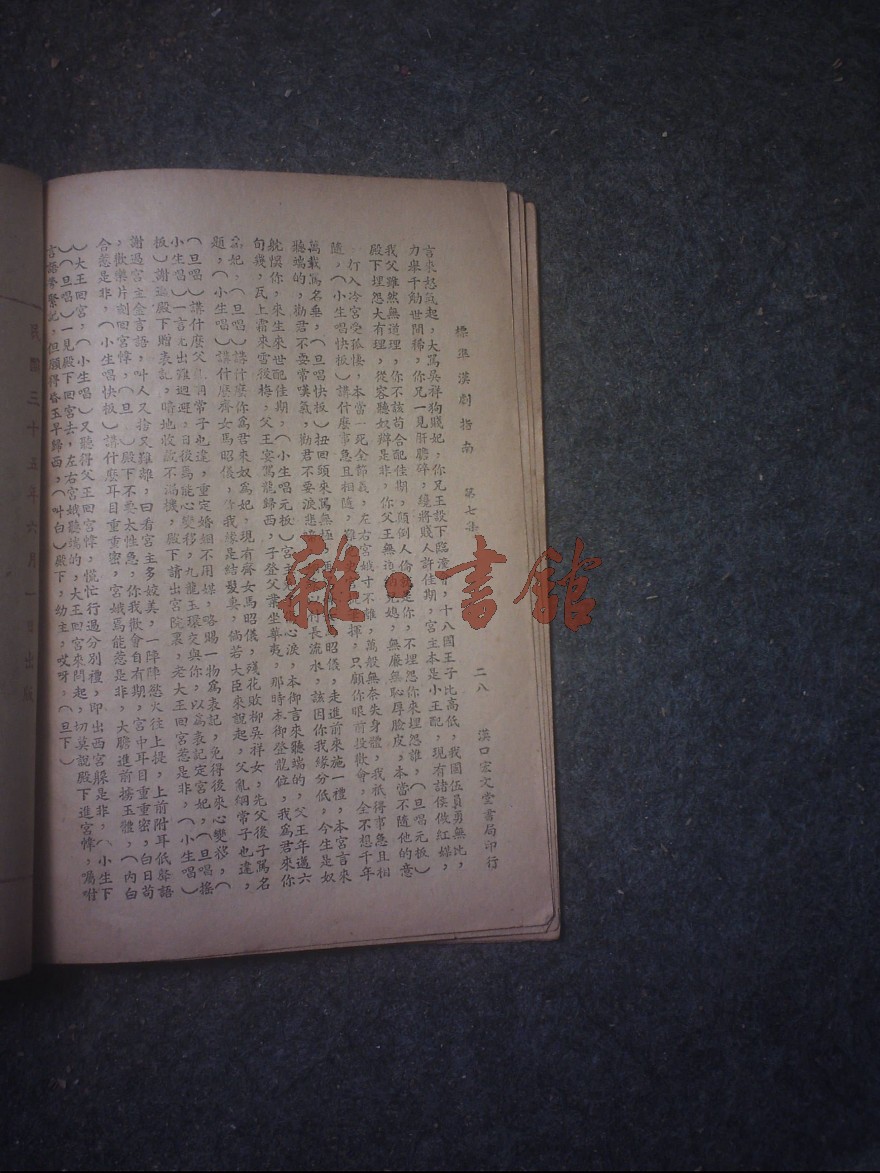 標準漢劇指南　第七集　二八　漢口宏文堂書局印行
言來怒氣起，大罵吳祥狗賤妃，你兄王設下臨潼會，十八國王子比高低，我國伍員勇無比，
力舉千觔世間稀，你兄一見肝膽碎，纔將賤人許佳期，宮主本是小王配，現有諸侯做紅媒，
我父雖然無道理，你不該苟合配佳期，顛倒人倫是你，不埋怨你來埋怨誰，（旦唱元板）
殿下埋怨大有理，從容聽奴辯是非，你父王無道納兒媳，無廉無恥厚臉皮，本當不隨他的意
，打入冷宮受孤悽，本當一死全節義，左右宮娥寸不離，萬般無奈失身體，我祇得事急且相
隨，（小生唱快板）講什麼事急且相隨，揮，只顧你眼前投歡會，全不想千年
萬載罵名垂，（旦唱快板）扭回頭來罵無極，昭儀，走進前來施一禮，本宮言來
聽端的，勸君不要常嘆氣，勸君不要淚悲啼，付長流水，該因你我緣分低，今生是奴
躭悞你，來生來世配佳期，（小生唱元板）宮心淚，本御言來聽端的，父王年邁六
旬幾，瓦上霜來雪後梅，父王宴駕龍歸西，子登父業坐華夷，那時本御登龍位，我爲君來你
爲妃，（旦唱）講什麼你爲君來奴爲妃，現有齊女馬昭儀，殘花敗柳吳祥女，先父後子罵名
題，（小生唱）講什麼齊女馬昭儀，你我緣是結髮妻，倘若大臣來說起，父亂綱常子也違，
（旦唱）講什麼父亂綱常子也違，重定婚姻不用媒，略賜一物爲表記，免得後來心變移，（
小生唱）一言允出難迴避，日後焉能心變移，九龍玉環交與你，以爲表記定宮妃，（旦唱搖
板）謝過殿下贈表記，暗地收藏不漏機，殿下請出宮院裏，老大王回宮惹是非，（小生唱）
謝過宮主金言語，叫人又捨又難離，回看宮主多姣美，一陣陣慾火往上提，上前附耳低聲語
，歡樂片刻回宮幃，（旦）殿下不要太性急，你我歡會自有期，宮中耳目重重密，白日苟
合惹是非，（小生唱快板）講什麼耳目重重密，宮娥焉能惹是非，大膽進前摟玉體，（內白
）大王回宮，（小生唱）又聽得父王回宮幃，慌忙行過分別禮，即出西宮躲是非，（小生下
）（旦唱）一見殿下回宮去，左右宮娥聽端的，大王回宮來問起，切莫說殿下進宮幃，囑咐
言語謹緊記，但願得老王早歸西，（叫白）殿下，幼主，哎呀，（旦下）
民國三十五年六月一日出版
雜·書館